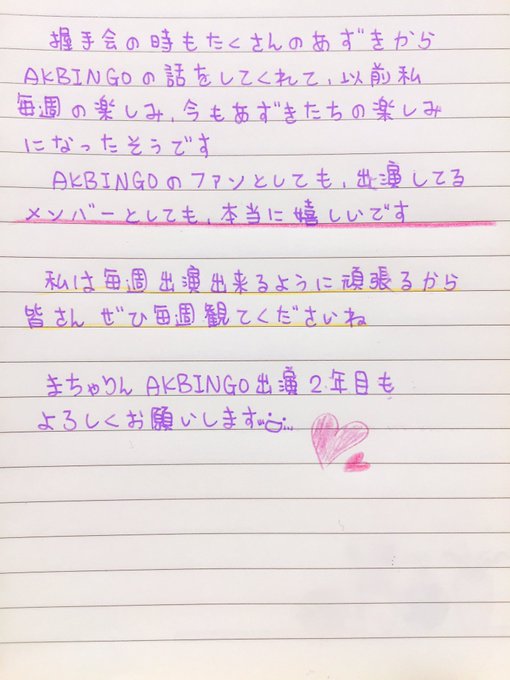 握手会の時もたくさんのあずきから
AKBINGOの話をしてくれて、以前私
毎週の楽しみ、今もあずきたちの楽しみ
になったそうです
AKBINGOのファンとしても、出演してる
メンバーとしても、本当に嬉しいです
私は毎週出演出来るように頑張るから
皆さんぜひ毎週観てくださいね
まちゃりんAKBINGO出演2年目も
よろしくお願いします